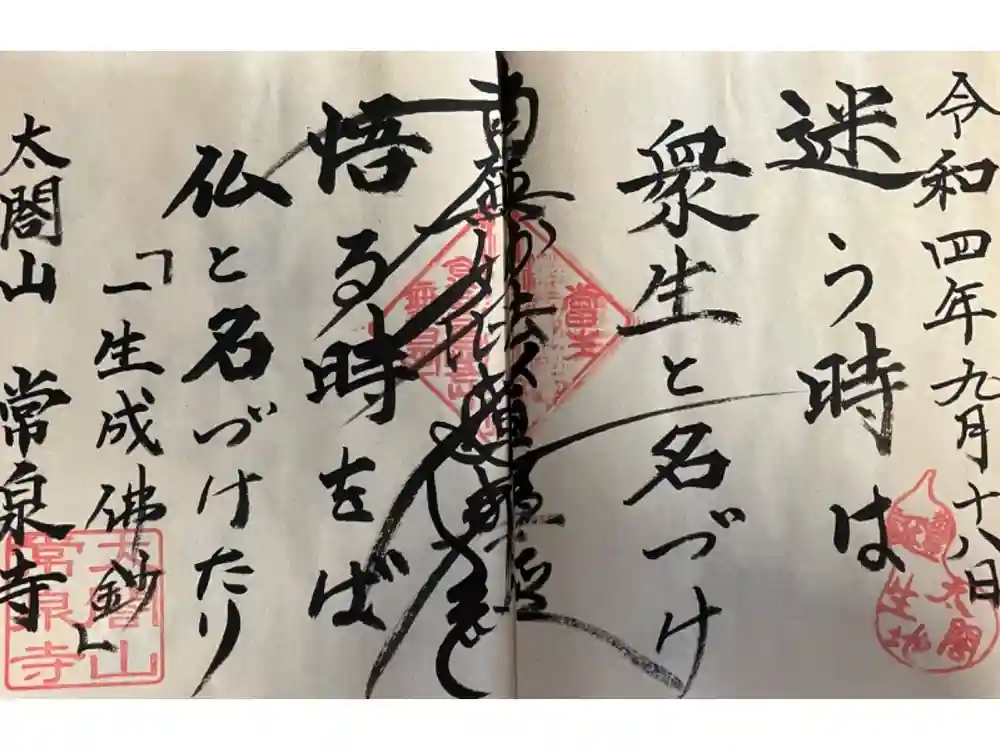 令和四年九月十八日
迷う時は
衆生と名づけ
南無妙法蓮華経
悟る時をば
仏と名づけたり
「一生成佛鈔」
太閤山 常泉寺
豊太閤
生地
太閤山
常泉寺